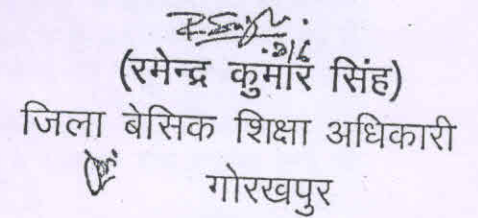 (रमेन्द्र कुमार सिंह)
जिला बेसिक शिक्षा अधिकारी
गोरखपुर